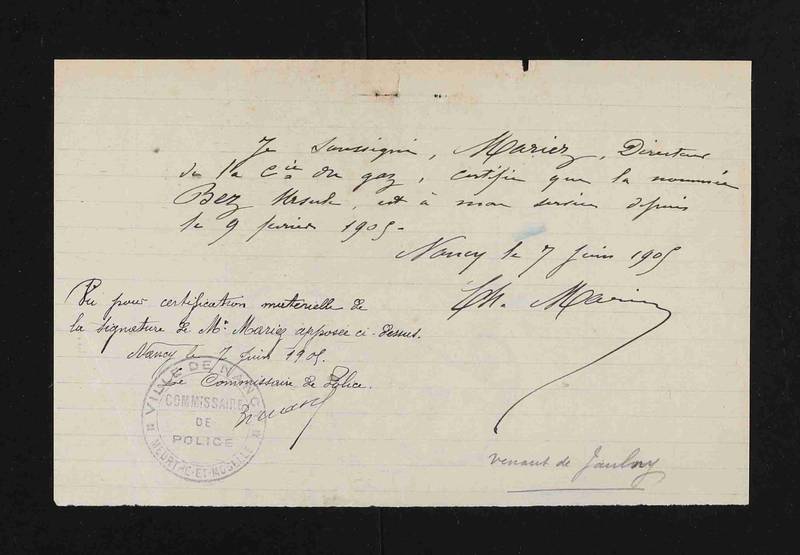 Je soussigné, Mariez, Directeur
de la Cie du gaz, certifie que la nommée
Bez Ursule, est à mon service depuis
le 9 février 1905.
Nancy le 7 juin 1905
Ch. Mariez
Vu pour certification matérielle de
la signature de Mr Mariez apposée ci-dessus.
Nancy le 7 juin 1905.
Le Commissaire de Police.
VILLE DE NANCY
COMMISSAIRE
DE
POLICE
MEURTHE-ET-MOSELLE
venant de Jaulny